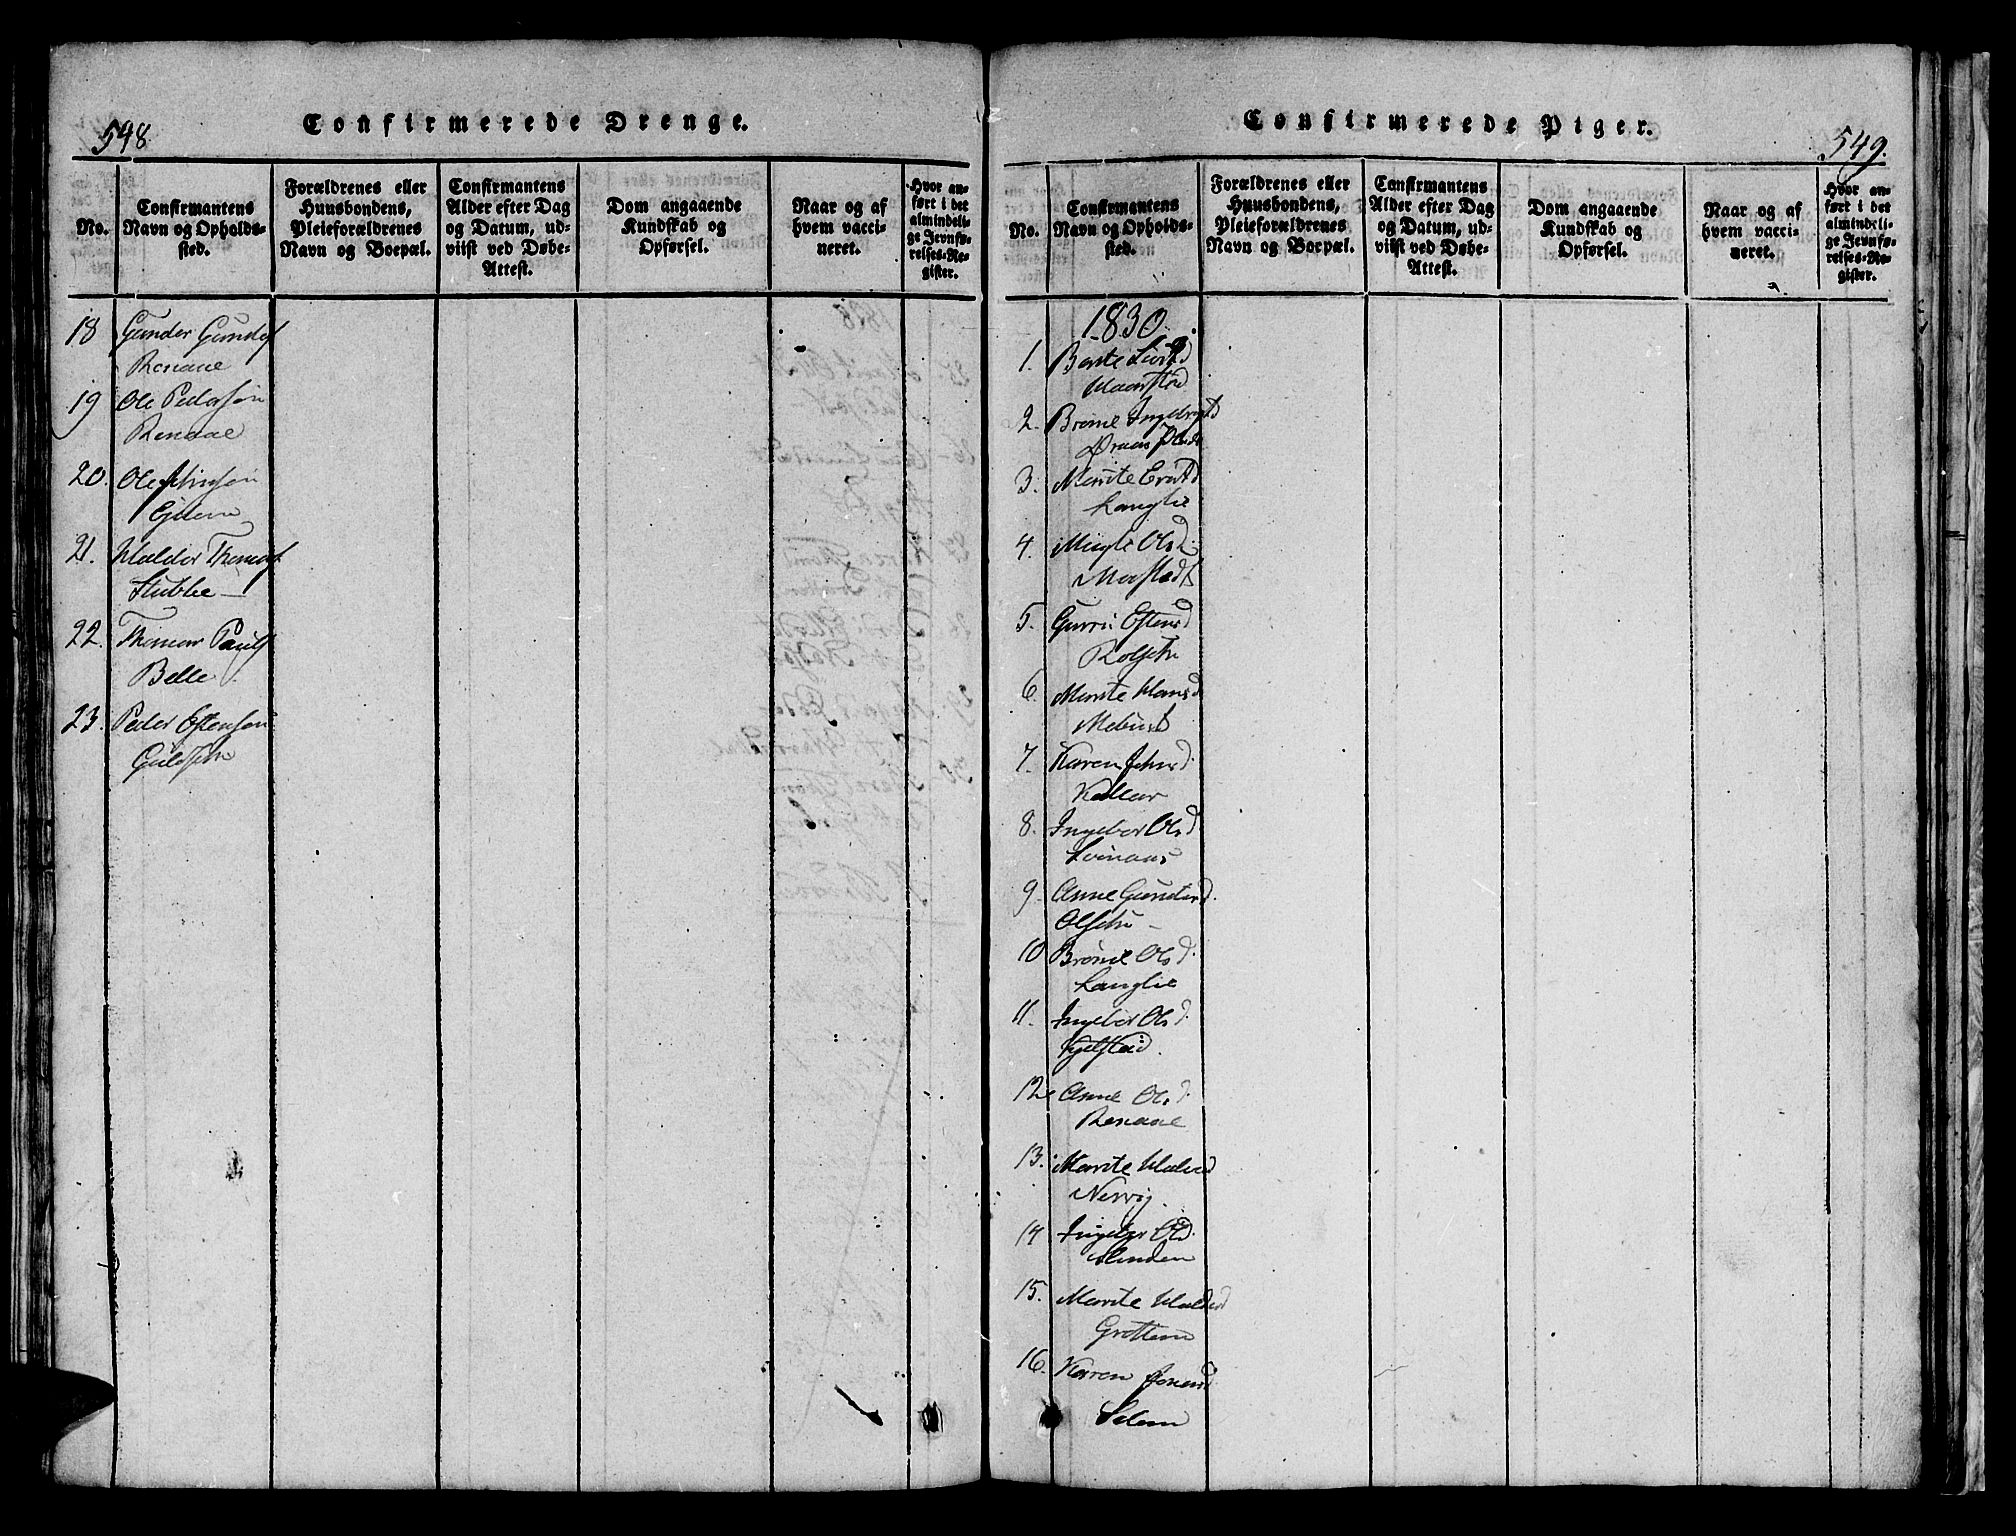 548
Confirmerede Drenge.
No.
Confirmantens
Navn og Opholds-
sted.
Forældrenes eller
Huusbondens,
Pleieforældrenes
Navn og Boepæl.
Confirmantens
Alder efter Dag
og Datum, ud-
viist ved Døbe-
Attest.
Dom angaaende
Kundskab og
Opførsel.
Naar og af
hvem vacci-
neret.
Hvor an-
ført i det
almindeli-
ge Jevnfø-
relses-Re-
gister.
18 Gunder Gunders
Renaae
19 Ole Pedersøn
Renaae
20. Ole
21. Halder Thomas
Stubbe
22. Thomas Pauls
Belle
23. Peder Estensøn
Guldsetn
Confirmerede Piger.
549.
No.
Confirmantens
Navn og Opholds-
sted.
Forældrenes eller
Huusbondens,
Pleieforældrenes
Navn og Boepæl.
Confirmantens
Alder efter Dag
og Datum, ud-
viist ved Døbe-
Attest.
Dom angaaende
Kundskab og
Opførsel.
Naar og af
hvem vacci-
neret.
Hvor an-
ført i det
almindeli-
ge Jevnfø-
relses-Re-
gister.
1830.
1. Berte
Haarstad
2. Brønil Ingebrigtsd
3. Marite
Langlie
4. Olsd.
Morstad
5. Gurri Estensd
Rolsetn
6. Marite Hansd
Mebust
7. Karen Johnsd.
Kallar
8. Ingebor Olsd
9. Anne Gundersd.
Olsetn
10 Brønil Olsd.
Langlie
11. Ingebor Olsd.
Kjelstad.
12 Anne Olsd.
Renaae
13. Marite
Nervig.
14 Ingebor Olsd.
15. Marite Haldersd
Grøttem
16. Karen Jonsd.
Selem